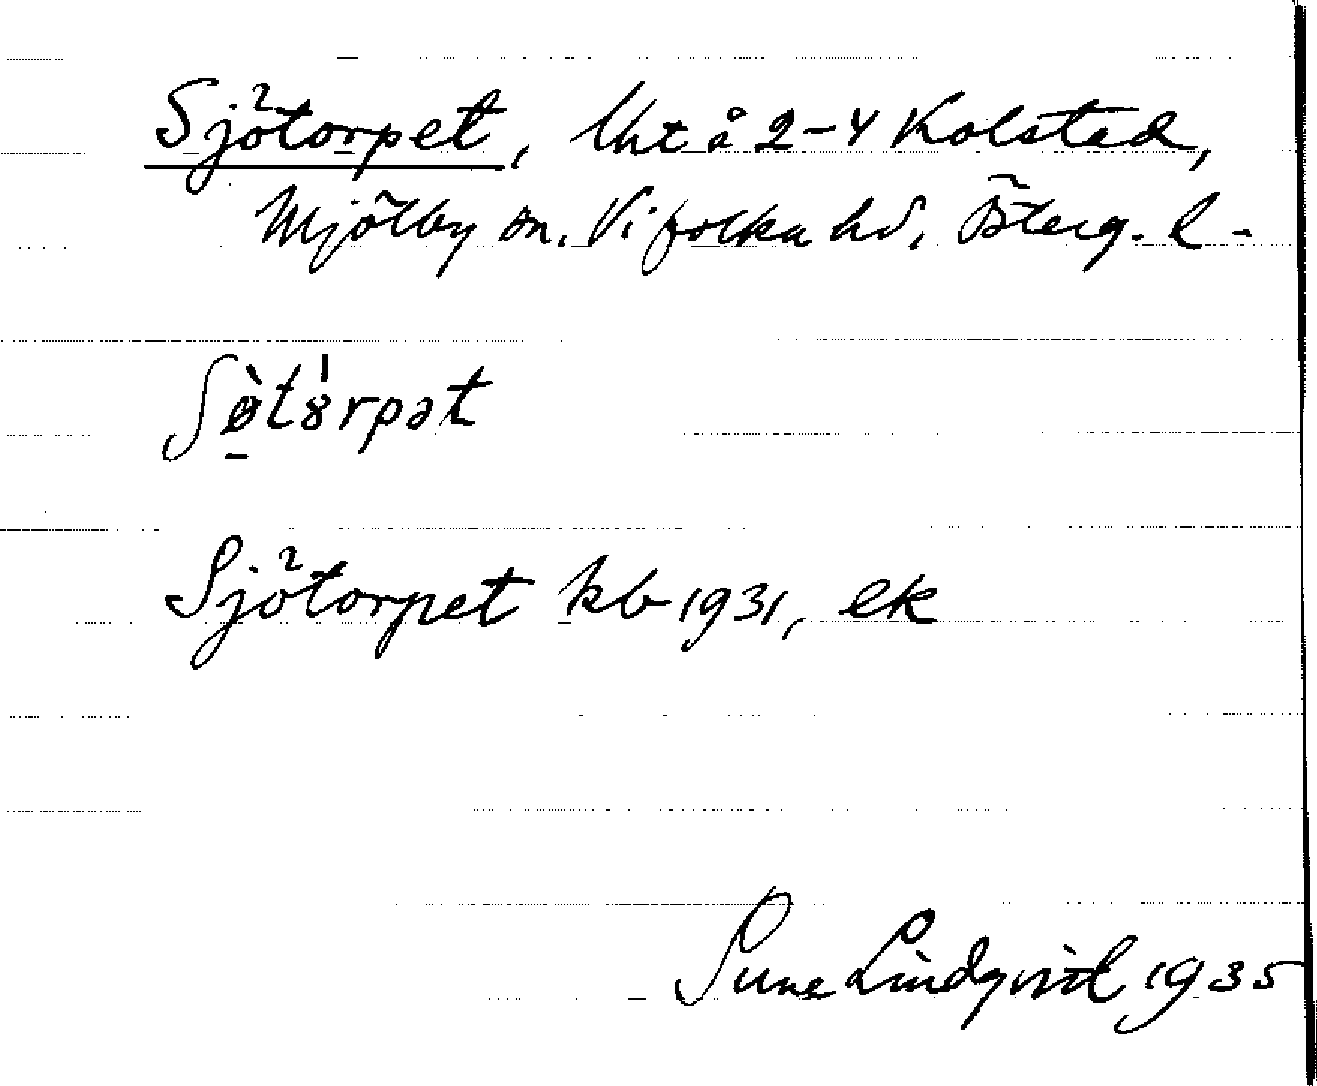 Sjötorpet, lht å 2-4 Kolstad,
Mjölby sn. Vifolka hd, Österg. l-
Sjötorpet kb 1931, ek
Sune Lindqvist 1935